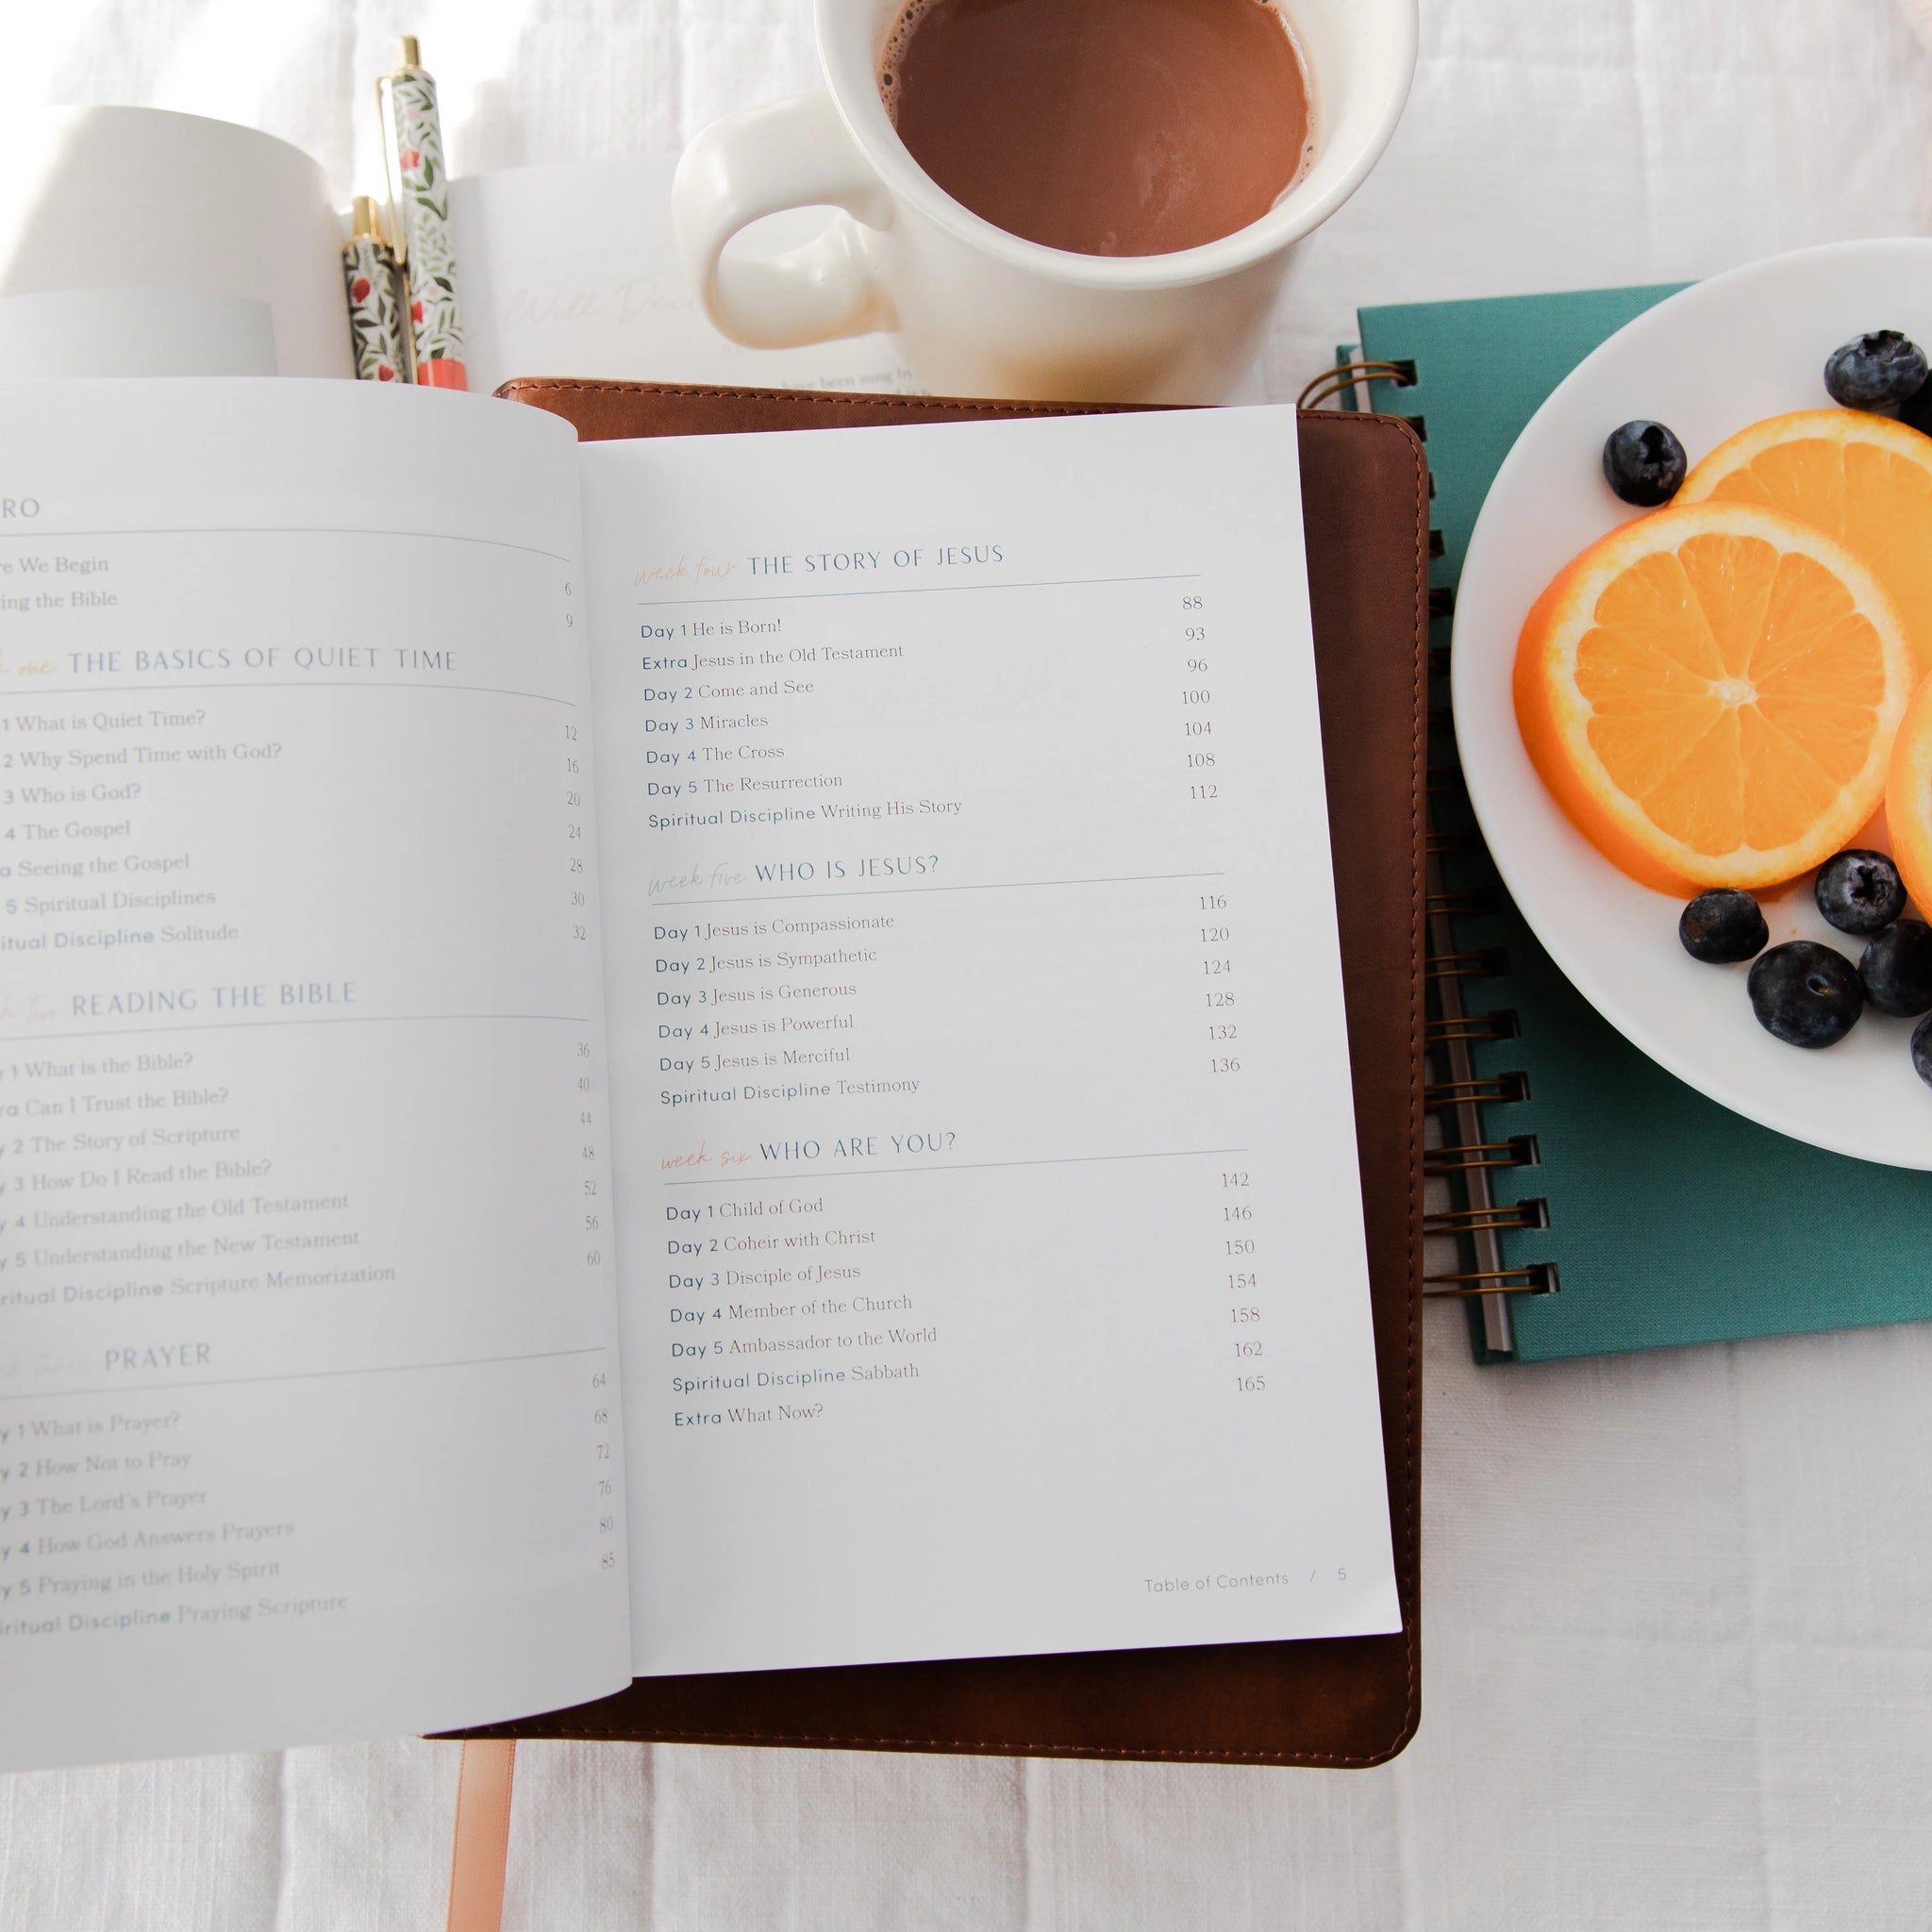 RO
re We Begin 6
ing the Bible 9
one THE BASICS OF QUIET TIME
1 What is Quiet Time? 12
2 Why Spend Time with God? 16
3 Who is God? 20
4 The Gospel 24
a Seeing the Gospel 28
5 Spiritual Disciplines 30
itual Discipline Solitude 32
two READING THE BIBLE
y 1 What is the Bible? 36
ra Can I Trust the Bible? 40
y 2 The Story of Scripture 44
y 3 How Do I Read the Bible? 48
y 4 Understanding the Old Testament 52
y 5 Understanding the New Testament 56
ritual Discipline Scripture Memorization 60
PRAYER
y 1 What is Prayer? 64
y 2 How Not to Pray 68
y 3 The Lord's Prayer 72
y 4 How God Answers Prayers 76
y 5 Praying in the Holy Spirit 80
iritual Discipline Praying Scripture 85
Will
have been sung by
week four THE STORY OF JESUS
Day 1 He is Born! 88
Extra Jesus in the Old Testament 93
Day 2 Come and See 96
Day 3 Miracles 100
Day 4 The Cross 104
Day 5 The Resurrection 108
Spiritual Discipline Writing His Story 112
week five WHO IS JESUS?
Day 1 Jesus is Compassionate 116
Day 2 Jesus is Sympathetic 120
Day 3 Jesus is Generous 124
Day 4 Jesus is Powerful 128
Day 5 Jesus is Merciful 132
Spiritual Discipline Testimony 136
week six WHO ARE YOU?
Day 1 Child of God 142
Day 2 Coheir with Christ 146
Day 3 Disciple of Jesus 150
Day 4 Member of the Church 154
Day 5 Ambassador to the World 158
Spiritual Discipline Sabbath 162
Extra What Now? 165
Table of Contents / 5